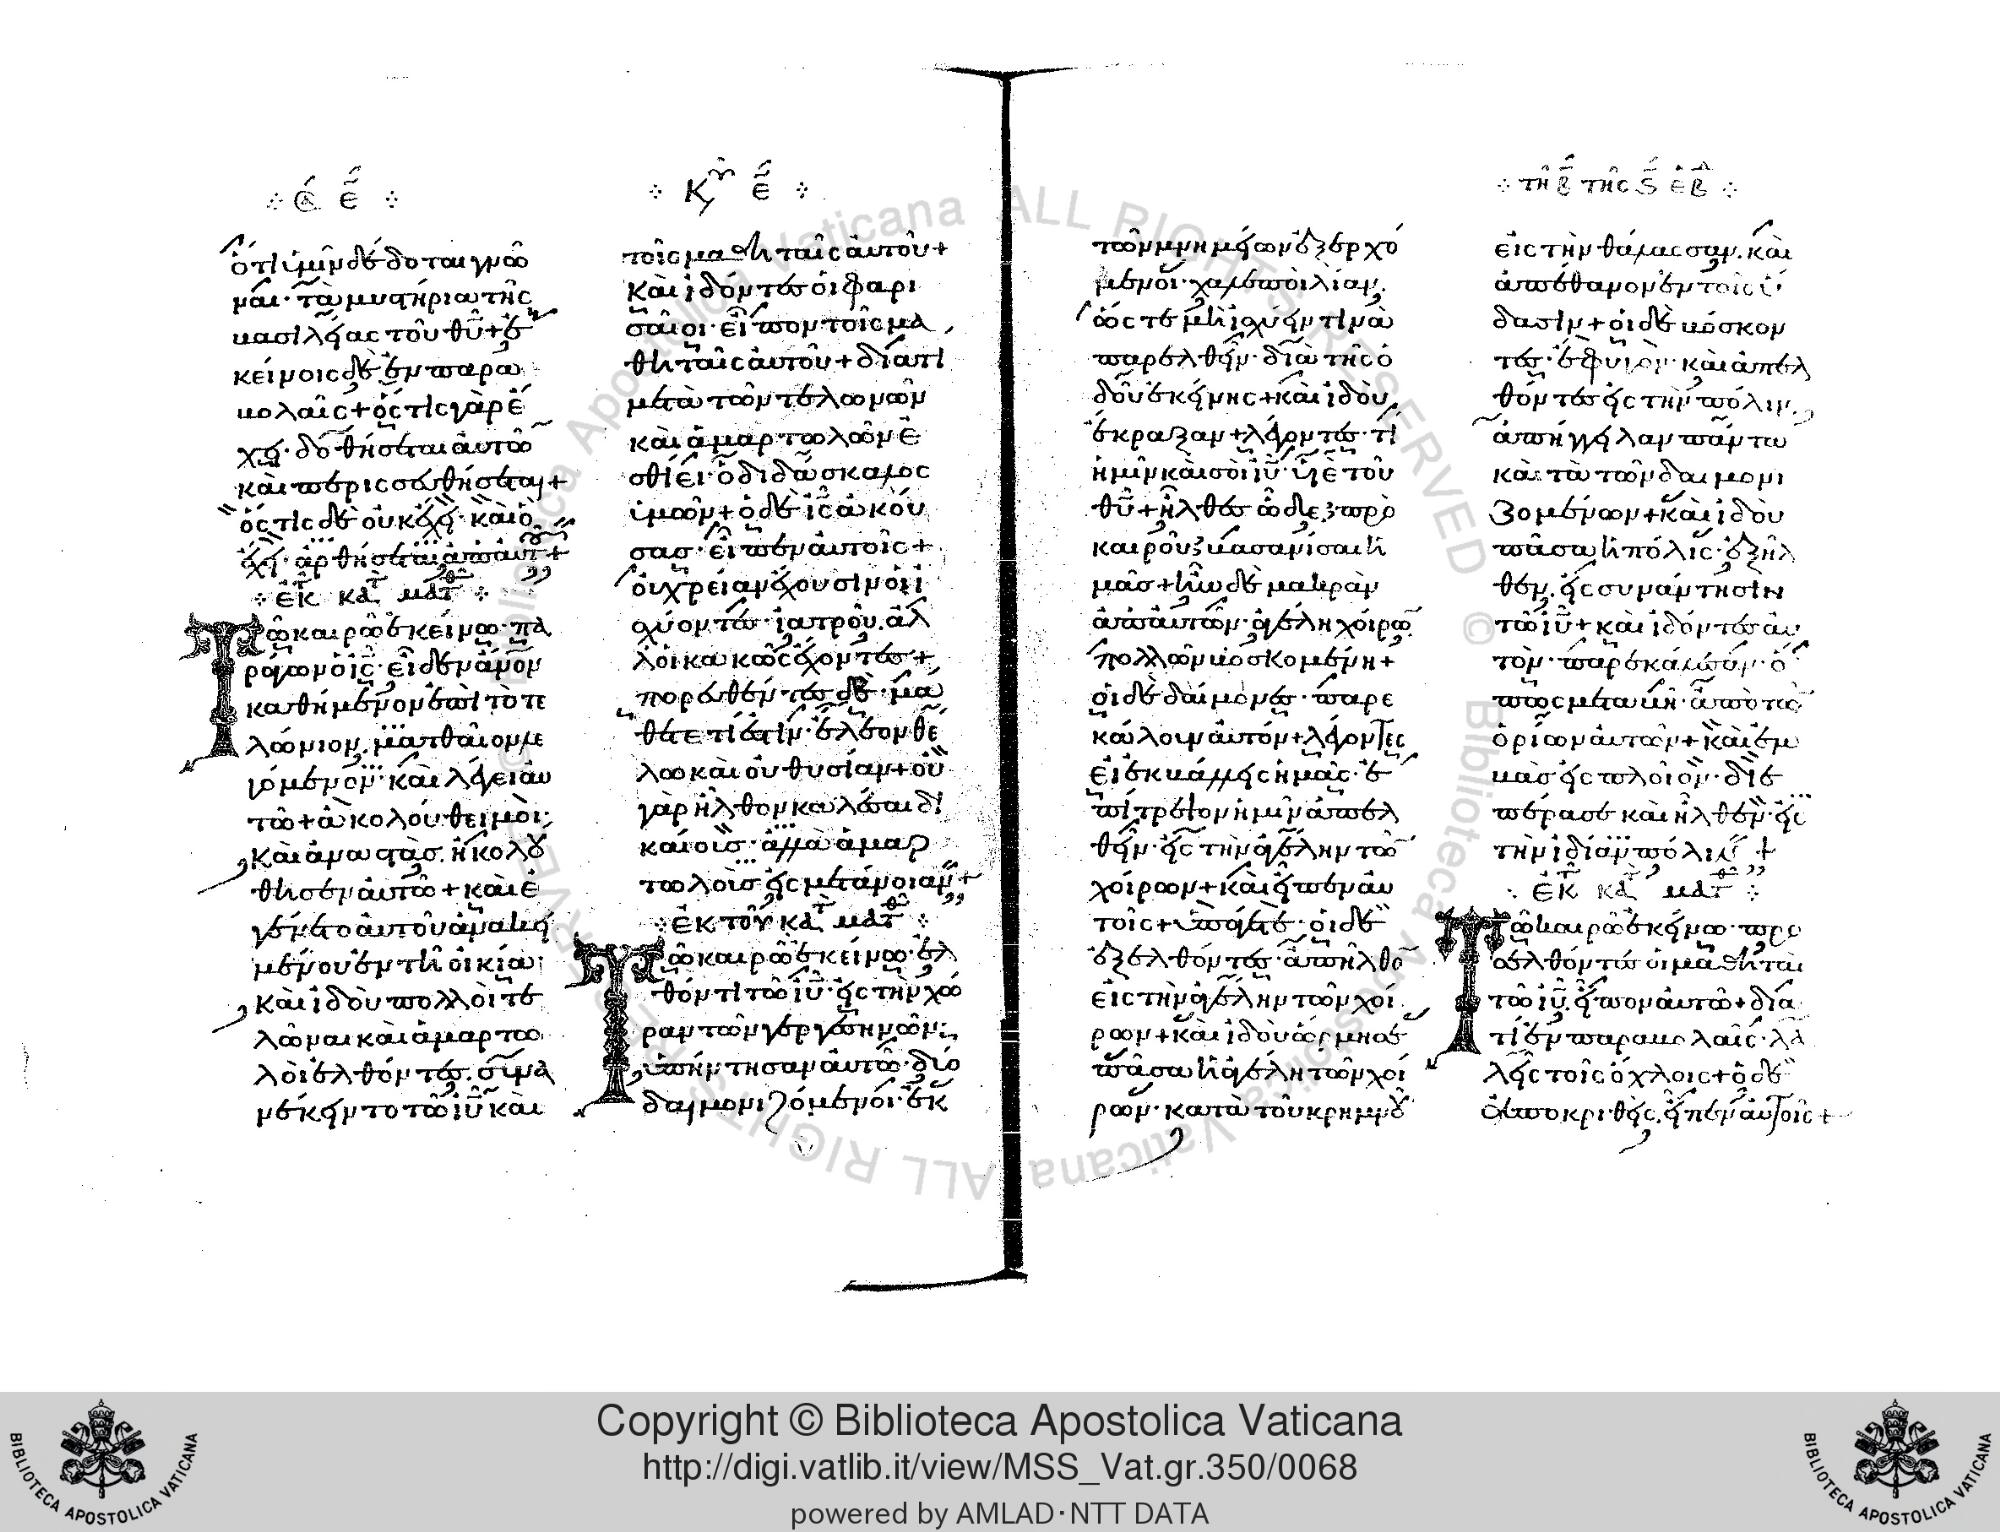 ὅτι ὑμῖν δέδοται γνῶ
ναι· τὰ μυστήρια τῆς
βασιλείας τοῦ θῦ + ἐ
κείνοις δὲ ἐν παρα
βολαῖς + ὅστις γὰρ ἔ
χει· δοθήσεται αὐτῶ
καὶ περισσευθήσεται +
ὅστις δὲ οὐκ ἔχει· καὶ ὃ
ἔχει· ἀρθήσεται ἀπ αὐτ +
ἐκ κατ ματθ
Τῶ καιρῶ ἐκείνω· πα
ράγων ὁ ις· εἶδεν ἄνον
καθήμενον ἐπὶ τὸ τε
λώνιον. ματθαῖον λε
γόμενον· καὶ λέγει αὐ
τῶ + ἀκολούθει μοι·
Καὶ ἀναστὰς. ἠκολού
θησεν αὐτῶ + καὶ ἐ
γένετο αὐτοῦ ἀνακει
μένου ἐν τῆ οἰκία·
Καὶ ἰδοὺ πολλοὶ τε
λῶναι καὶ ἁμαρτω
λοὶ ἐλθόντες. συνα
νέκειντο τῶ ιῦ καὶ
τοῖς μαθηταῖς αὐτοῦ +
Καὶ ἰδόντες οἱ φαρι
σαῖοι· εἶπον τοῖς μα
θηταῖς αὐτοῦ + διατί
μετὰ τῶν τελωνῶν
καὶ ἁμαρτωλῶν ἐ
σθίει· ὁ διδάσκαλος
ὑμῶν + ὁ δὲ ις ἀκού
σας· εἶπεν αὐτοῖς +
οὐ χρείαν ἔχουσιν οἱ ἰ
σχύοντες· ἰατροῦ. ἀλ
λ οἱ κακῶς ἔχοντες +
πορευθέντες δὲ· μά
θετε τί ἐστίν· ἔλεον θέ
λω καὶ οὐ θυσίαν + οὐ
γὰρ ἦλθον καλέσαι δι
καίους· ἀλλὰ ἁμαρ
τωλοὺς εἰς μετάνοιαν +
ἐκ τοῦ κατ ματθ
Τῶ καιρῶ ἐκείνω· ἐλ
θόντι τῶ ιῦ· εἰς τὴν χώ
ραν τῶν γεργεσηνῶν·
ὑπήντησαν αὐτῶ· δύο
δαιμονιζόμενοι· ἐκ
τῆ β τῆς ϛ ἑβ
τῶν μνημείων ἐξερχό
μενοι· χαλεποὶ λίαν.
ὥστε μὴ ἰσχύειν τινὰ
παρελθεῖν· διὰ τῆς ὁ
δοῦ ἐκείνης + καὶ ἰδοὺ
ἔκραξαν + λέγοντες· τί
ἡμῖν καὶ σοὶ ιῦ· υἱὲ τοῦ
θῦ + ἦλθες ὧδε πρὸ
καιροῦ βασανίσαι ἡ
μᾶς + ἦν δὲ μακρὰν
ἀπ αὐτῶν· ἀγέλη χοίρω
πολλῶν βοσκομένη +
οἱ δὲ δαίμονες· παρε
κάλουν αὐτόν + λέγοντες
εἰ ἐκβάλλεις ἡμᾶς· ἐ
πίτρεψον ἡμῖν ἀπελ
θεῖν· εἰς τὴν ἀγέλην τῶ
χοίρων + καὶ εἶπεν αὐ
τοῖς + ὑπάγετε· οἱ δὲ
ἐξελθόντες· ἀπῆλθο
εἰς τὴν ἀγέλην τῶν χοί
ρων + καὶ ἰδοὺ ὥρμησε
πᾶσα ἡ ἀγέλη τῶν χοί
ρων· κατὰ τοῦ κρημνοῦ
εἰς τὴν θάλασσαν. καὶ
ἀπέθανον ἐν τοῖς ὕ
δασιν + οἱ δὲ βόσκον
τες· ἔφυγον· καὶ ἀπελ
θόντες εἰς τὴν πόλιν.
ἀπήγγειλαν πάντα
καὶ τὰ τῶν δαιμονι
ζομένων + καὶ ἰδοὺ
πᾶσα ἡ πόλις· ἐξῆλ
θεν. εἰς συνάντησιν
τῶ ιῦ + καὶ ἰδόντες αὐ
τὸν· παρεκάλεσαν· ὅ
πως μεταβῆ· ἀπὸ τῶ
ὁρίων αὐτῶν + καὶ ἐμ
βὰς εἰς πλοῖον· διε
πέρασε καὶ ἦλθεν· εἰς
τὴν ἰδίαν πόλιν +
ἐκ κατ ματθ
Τῶ καιρῶ ἐκείνω· προ
σελθόντες οἱ μαθηταὶ
τῶ ιῦ. εἶπον αὐτῶ + δια
τί ἐν παραβολαῖς· λα
λεῖς τοῖς ὄχλοις + ὁ δὲ
ἀποκριθεὶς. εἶπεν αὐτοῖς +
ALL RIGHTS RESERVED © Biblioteca Apostolica Vaticana
Copyright © Biblioteca Apostolica Vaticana
http://digi.vatlib.it/view/MSS_Vat.gr.350/0068
powered by AMLAD·NTT DATA
BIBLIOTECA APOSTOLICA VATICANA
BIBLIOTECA APOSTOLICA VATICANA